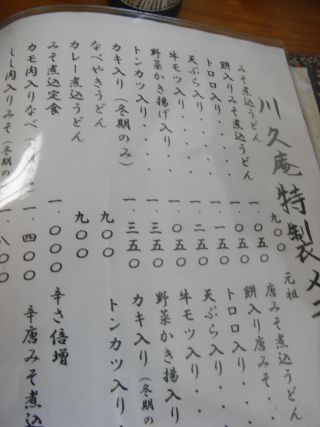 川久庵 特製メニ
みそ煮込うどん 九〇〇
餅入りみそ煮込うどん 一、〇五〇
トロロ入り・・
天ぷら入り・・
牛モツ入り・・
野菜かき揚げ入り
トンカツ入り・・
カキ入り（冬期のみ） 一、三五〇
なべやきうどん 九〇〇
カレー煮込うどん 九〇〇
みそ煮込定食 一、〇〇〇
カモ肉入りなべ 一、四〇〇
しし肉入りみそ（冬期の 一、八〇〇
元祖
唐みそ煮込うどん
餅入り唐みそ
トロロ入り・・
天ぷら入り・・
牛モツ入り・・
野菜かき揚入り
カキ入り（冬期の
トンカツ入り・
辛さ倍増
辛唐みそ煮込